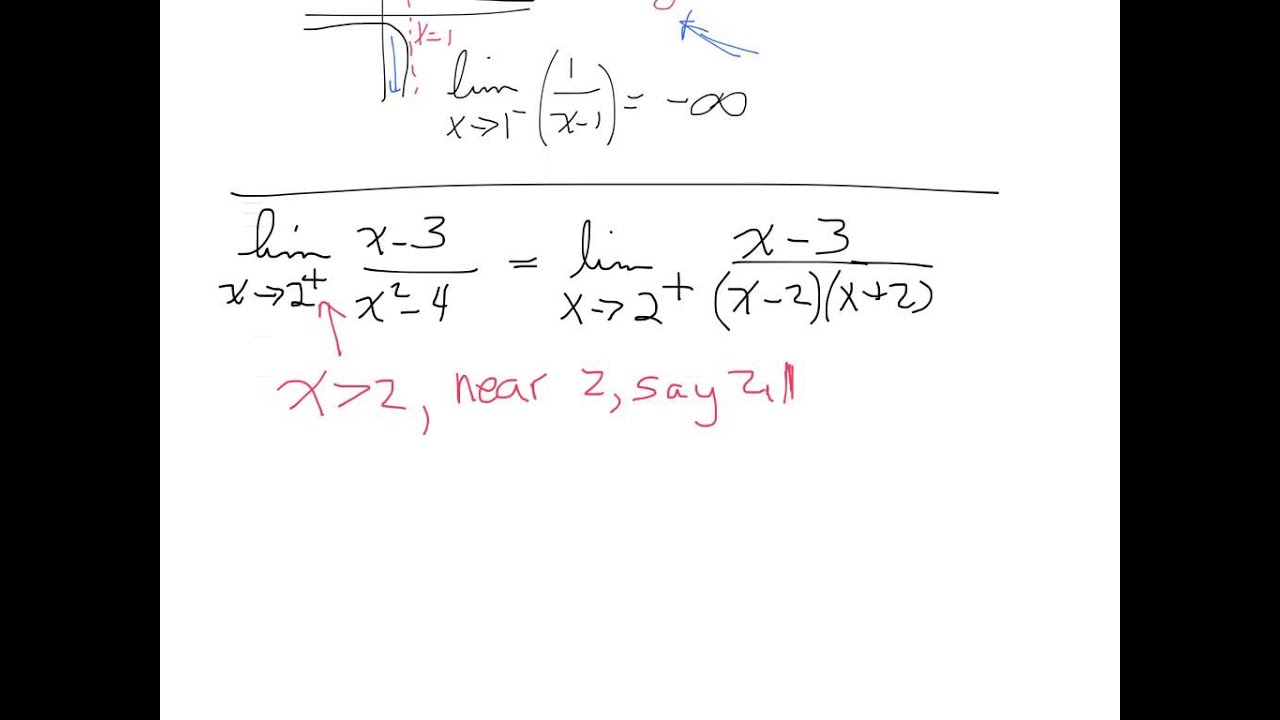 x=1
lim x→1⁻ (1/(x-1)) = -∞
lim x→2⁺ (x-3)/(x²-4) = lim x→2⁺ (x-3)/((x-2)(x+2))
x>2, near 2, say 2.1